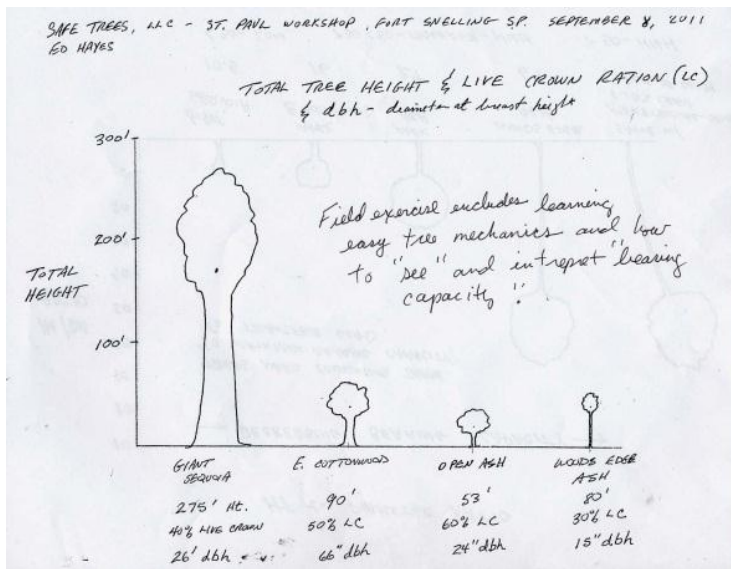 SAFE TREES, LLC - ST. PAUL WORKSHOP, FORT SNELLING S.P. SEPTEMBER 8, 2011
ED HAYES
TOTAL TREE HEIGHT & LIVE CROWN RATION (LC)
& dbh - diameter at breast height
300'
200'
100'
TOTAL
HEIGHT
Field exercise includes learning
easy tree mechanics and how
to "see" and intrepret "bearing
capacity".
GIANT
SEQUOIA
275' Ht.
40% LIVE CROWN
26' dbh
E. COTTONWOOD
90'
50% LC
66" dbh
OPEN ASH
53'
60% LC
24" dbh
WOODS EDGE
ASH
80'
30% LC
15" dbh